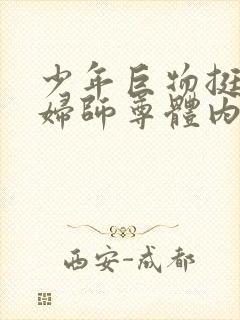 少年巨物挺
婦師尊體内
西安-成都